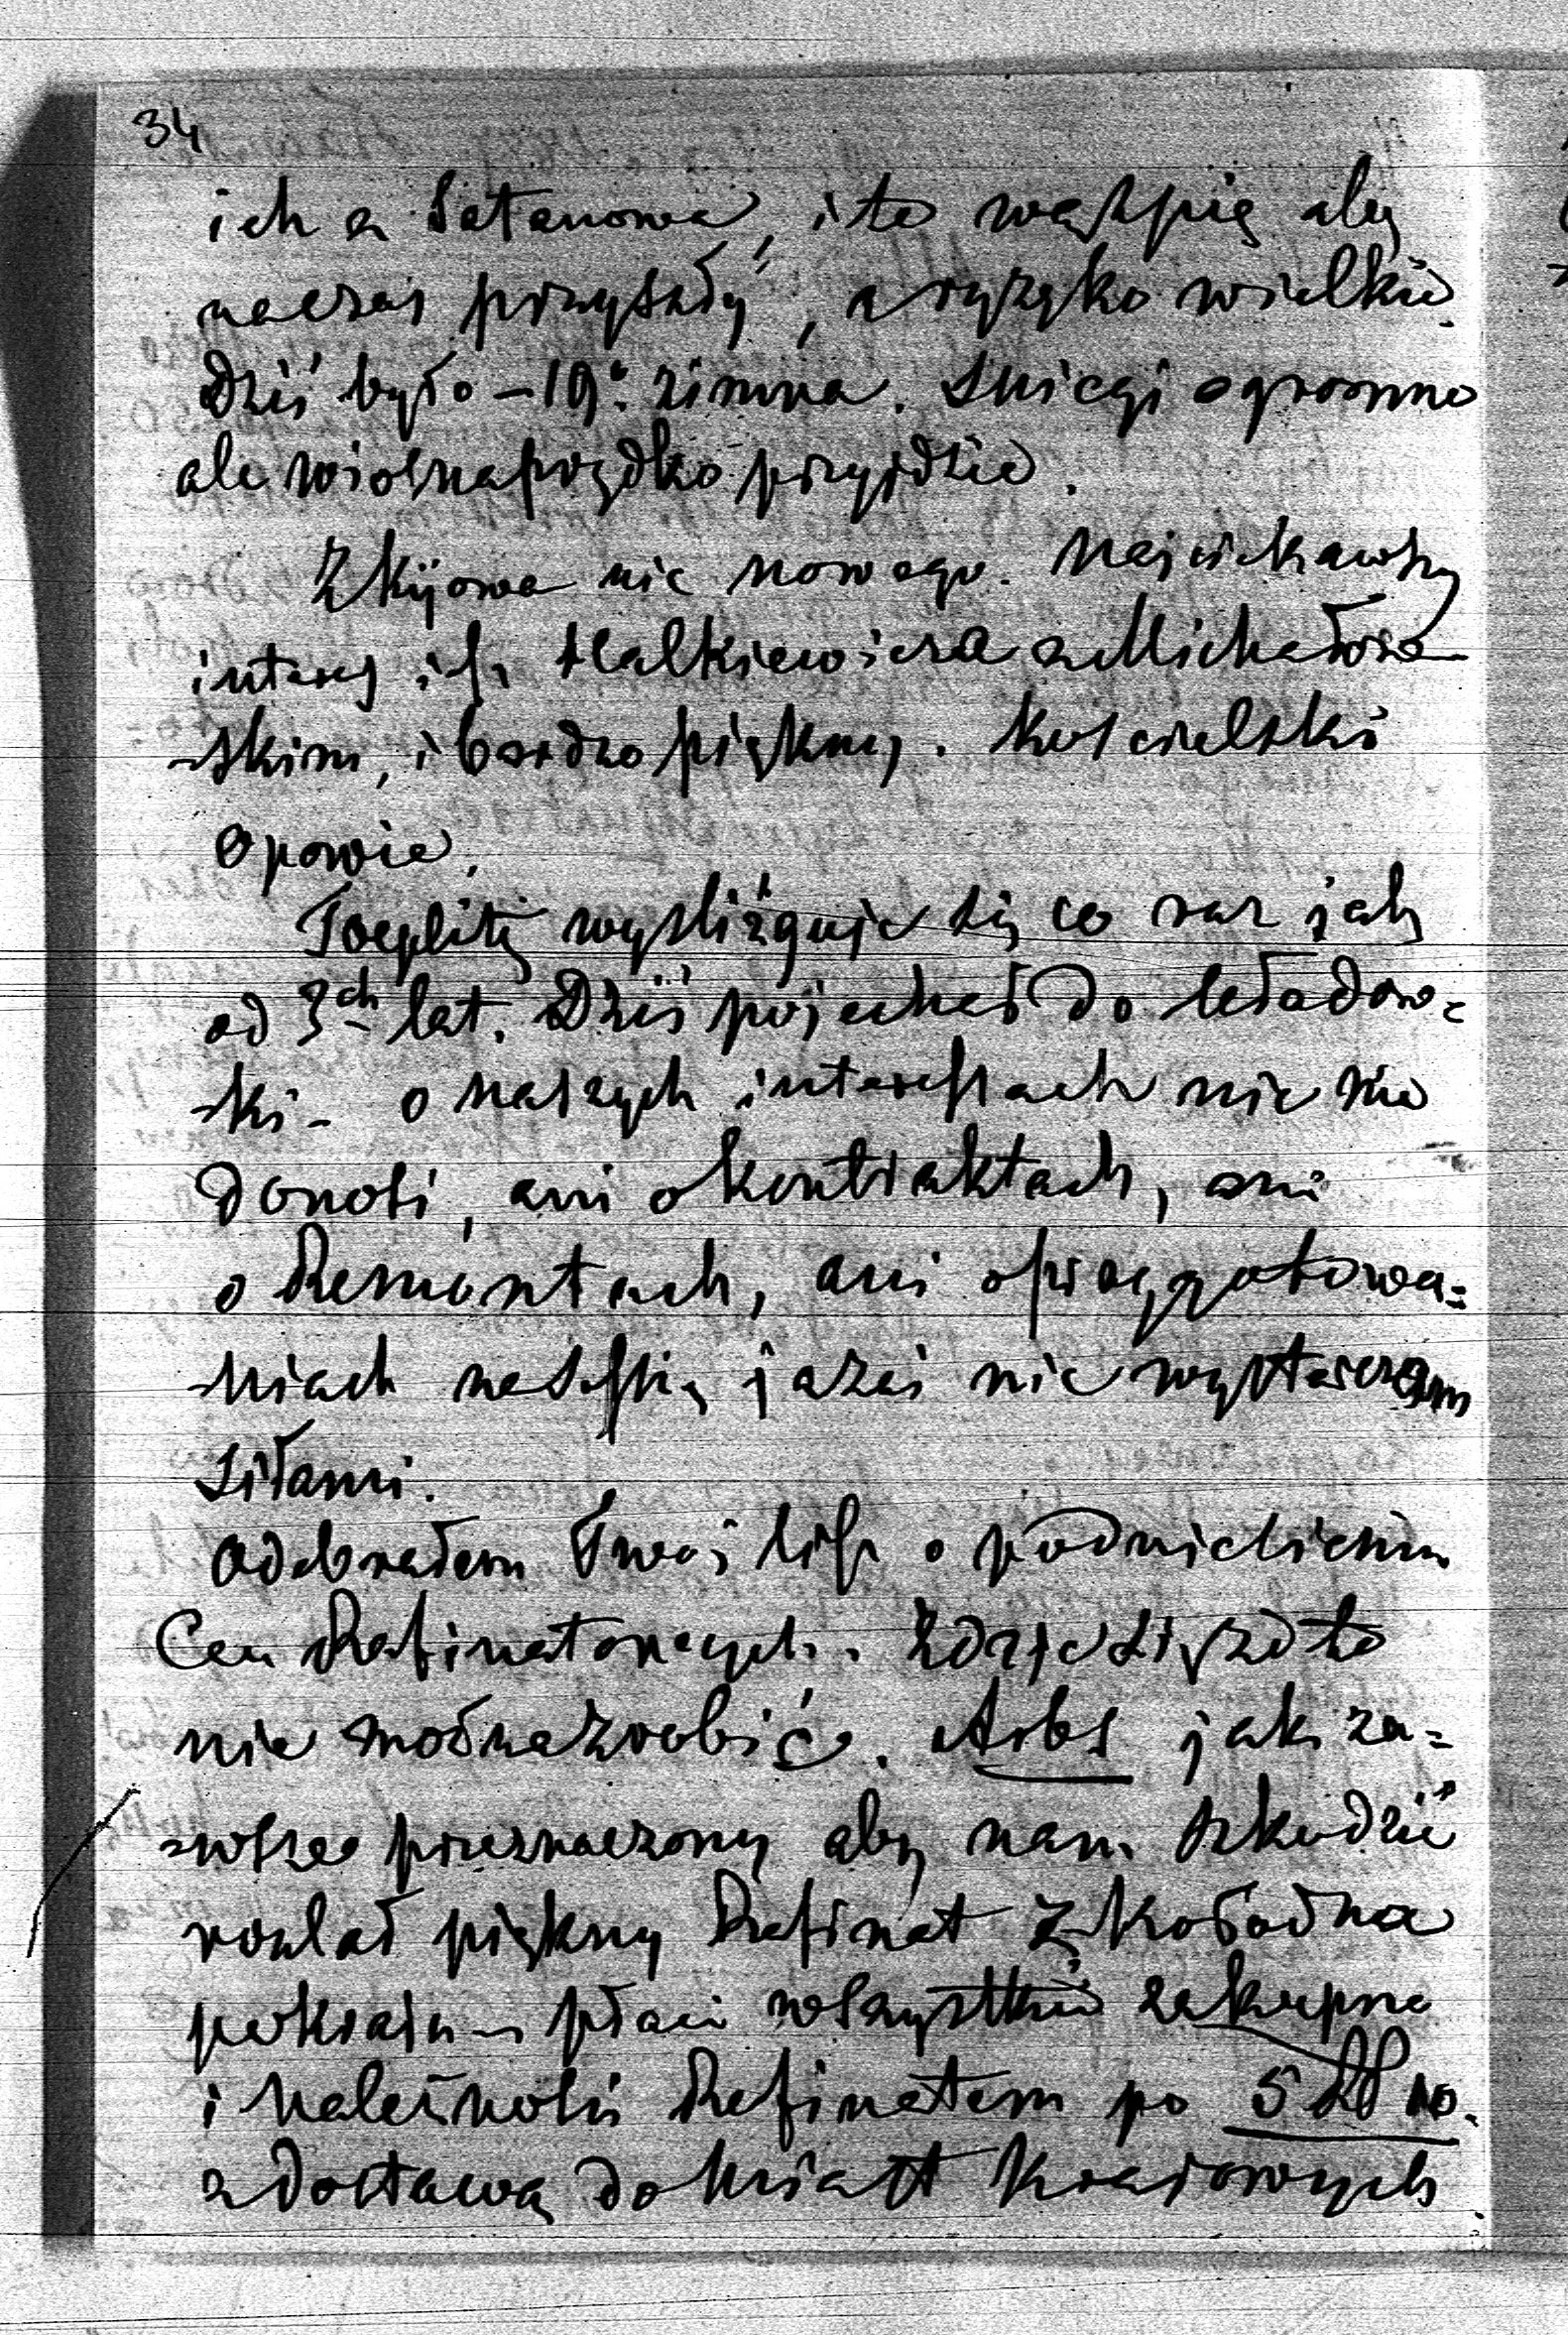 34
ich z Satanowa, i to wątpię aby
naczas przyszły, a ryzyko wielkie
Dziś było -19° zimna. Śniegi ogromne
ale wiosna prędko przyjdzie.
Z Kijowa nic nowego. Najciekawszy
interes jest Halkiewicza z Michałow=
-skim, i bardzo piękny. Kościelski
opowie.
Toeplitz wyśližguje się co raz jak
od 3ch lat. Dziś pojechał do Ładow=
-ki - o naszych interessach nic nie
donosi, ani o kontraktach, ani
o Remontach, ani o przygotowa=
-niach na
siłami.
Odebrałem Twój list o podniesieniu
Cen Rafinatowych. Zdaje się że to
nie można zrobić. Arbs jak za=
-wsze przeznaczony aby nam szkodzić
rozlał piękny Rafinat z Kołodna
po kraju - płaci wszystkie zakupna
i należności Rafinatem po 5
z dostawą do Miast Krajowych